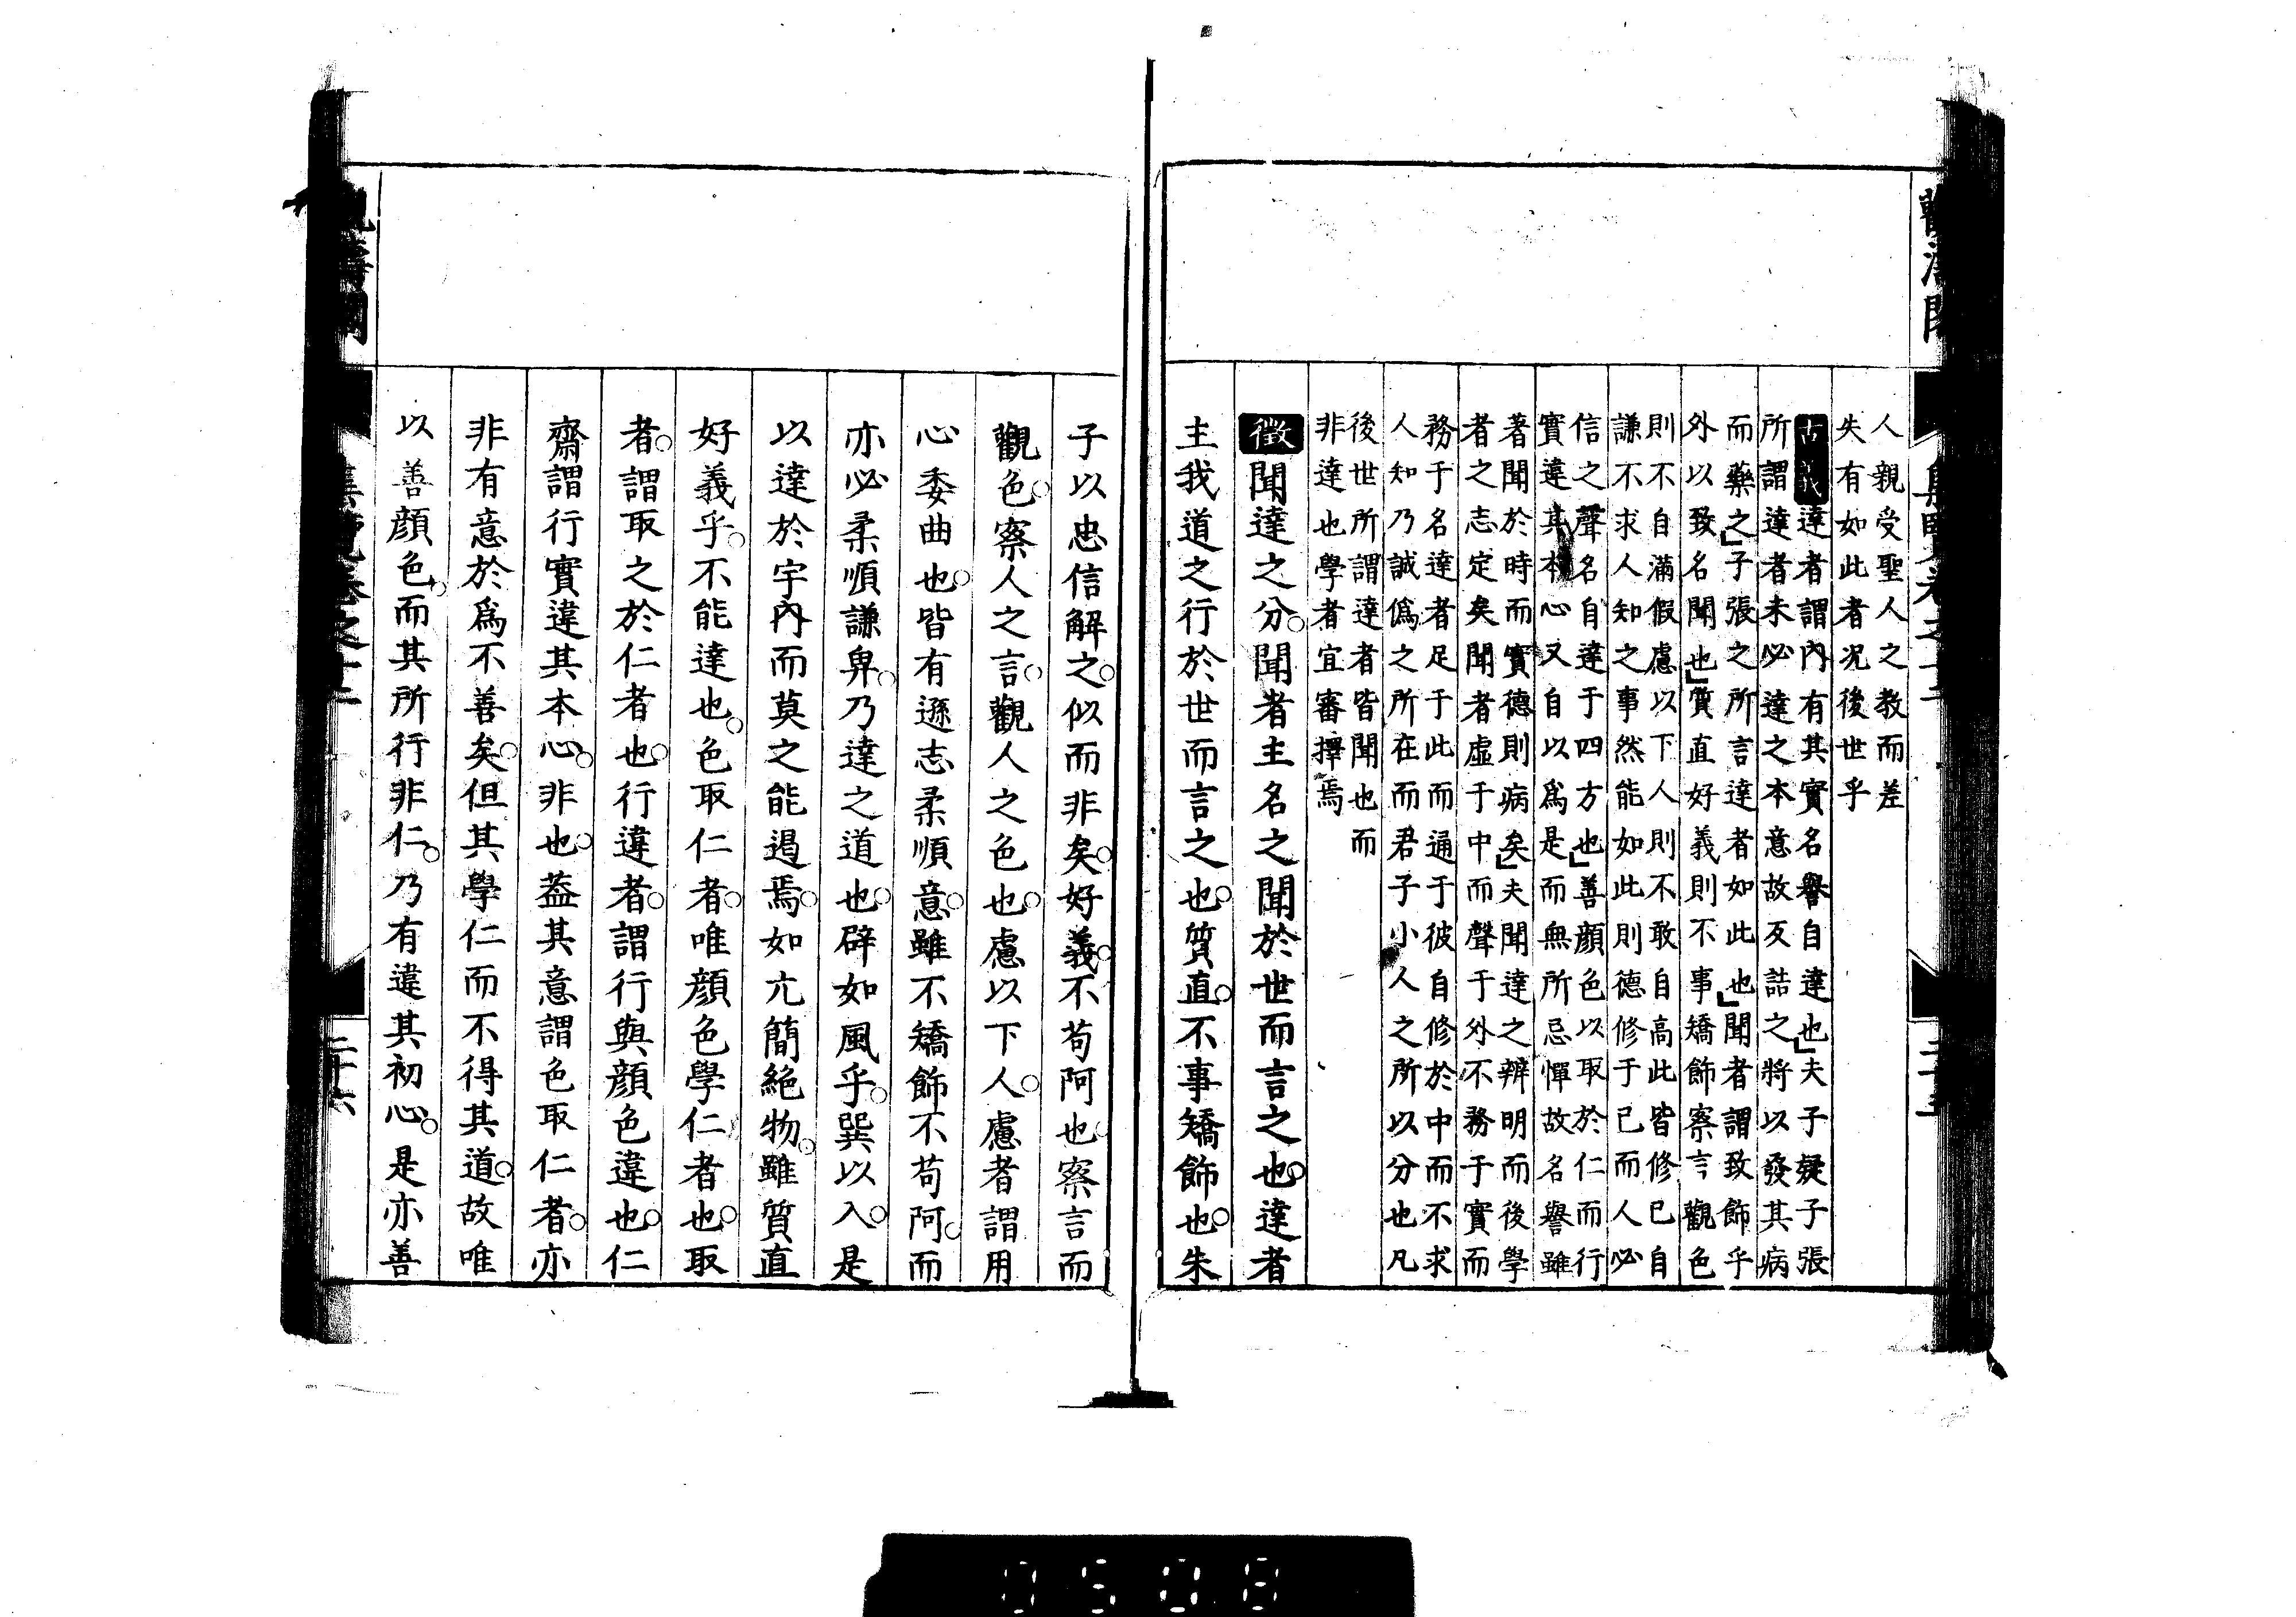 人親受聖人之教而差
失有如此者況後世乎
古義達者謂內有其實名譽自達也夫子疑子張
所謂達者未必達之本意故反詰之將以發其病
而藥之子張之所言達者如此也聞者謂致飾乎
外以致名聞也質直好義則不事矯飾察言觀色
則不自滿假慮以下人則不敢自高此皆修已自
謙不求人知之事然能如此則德修于已而人必
信之聲名自達于四方也善顏色以取於仁而行
實違其本心又自以爲是而無所忌憚故名譽雖
著聞於時而實德則病矣夫聞達之辨明而後學
者之志定矣聞者虛于中而聲于外不務于實而
務于名達者足于此而通于彼自修於中而不求
人知乃誠僞之所在而君子小人之所以分也凡
後世所謂達者皆聞也而
非達也學者宜審擇焉
徵聞達之分聞者主名之聞於世而言之也達者
主我道之行於世而言之也質直不事矯飾也朱
子以忠信解之似而非矣好義不苟阿也察言而
觀色察人之言觀人之色也慮以下人慮者謂用
心委曲也皆有遜志柔順意雖不矯飾不苟阿而
亦必柔順謙卑乃達之道也辟如風乎巽以入是
以達於宇內而莫之能遏焉如亢簡絕物雖質直
好義乎不能達也色取仁者唯顏色學仁者也取
者謂取之於仁者也行違者謂行與顏色違也仁
齋謂行實違其本心非也蓋其意謂色取仁者亦
非有意於爲不善矣但其學仁而不得其道故唯
以善顏色而其所行非仁乃有違其初心是亦善
二十六
0508